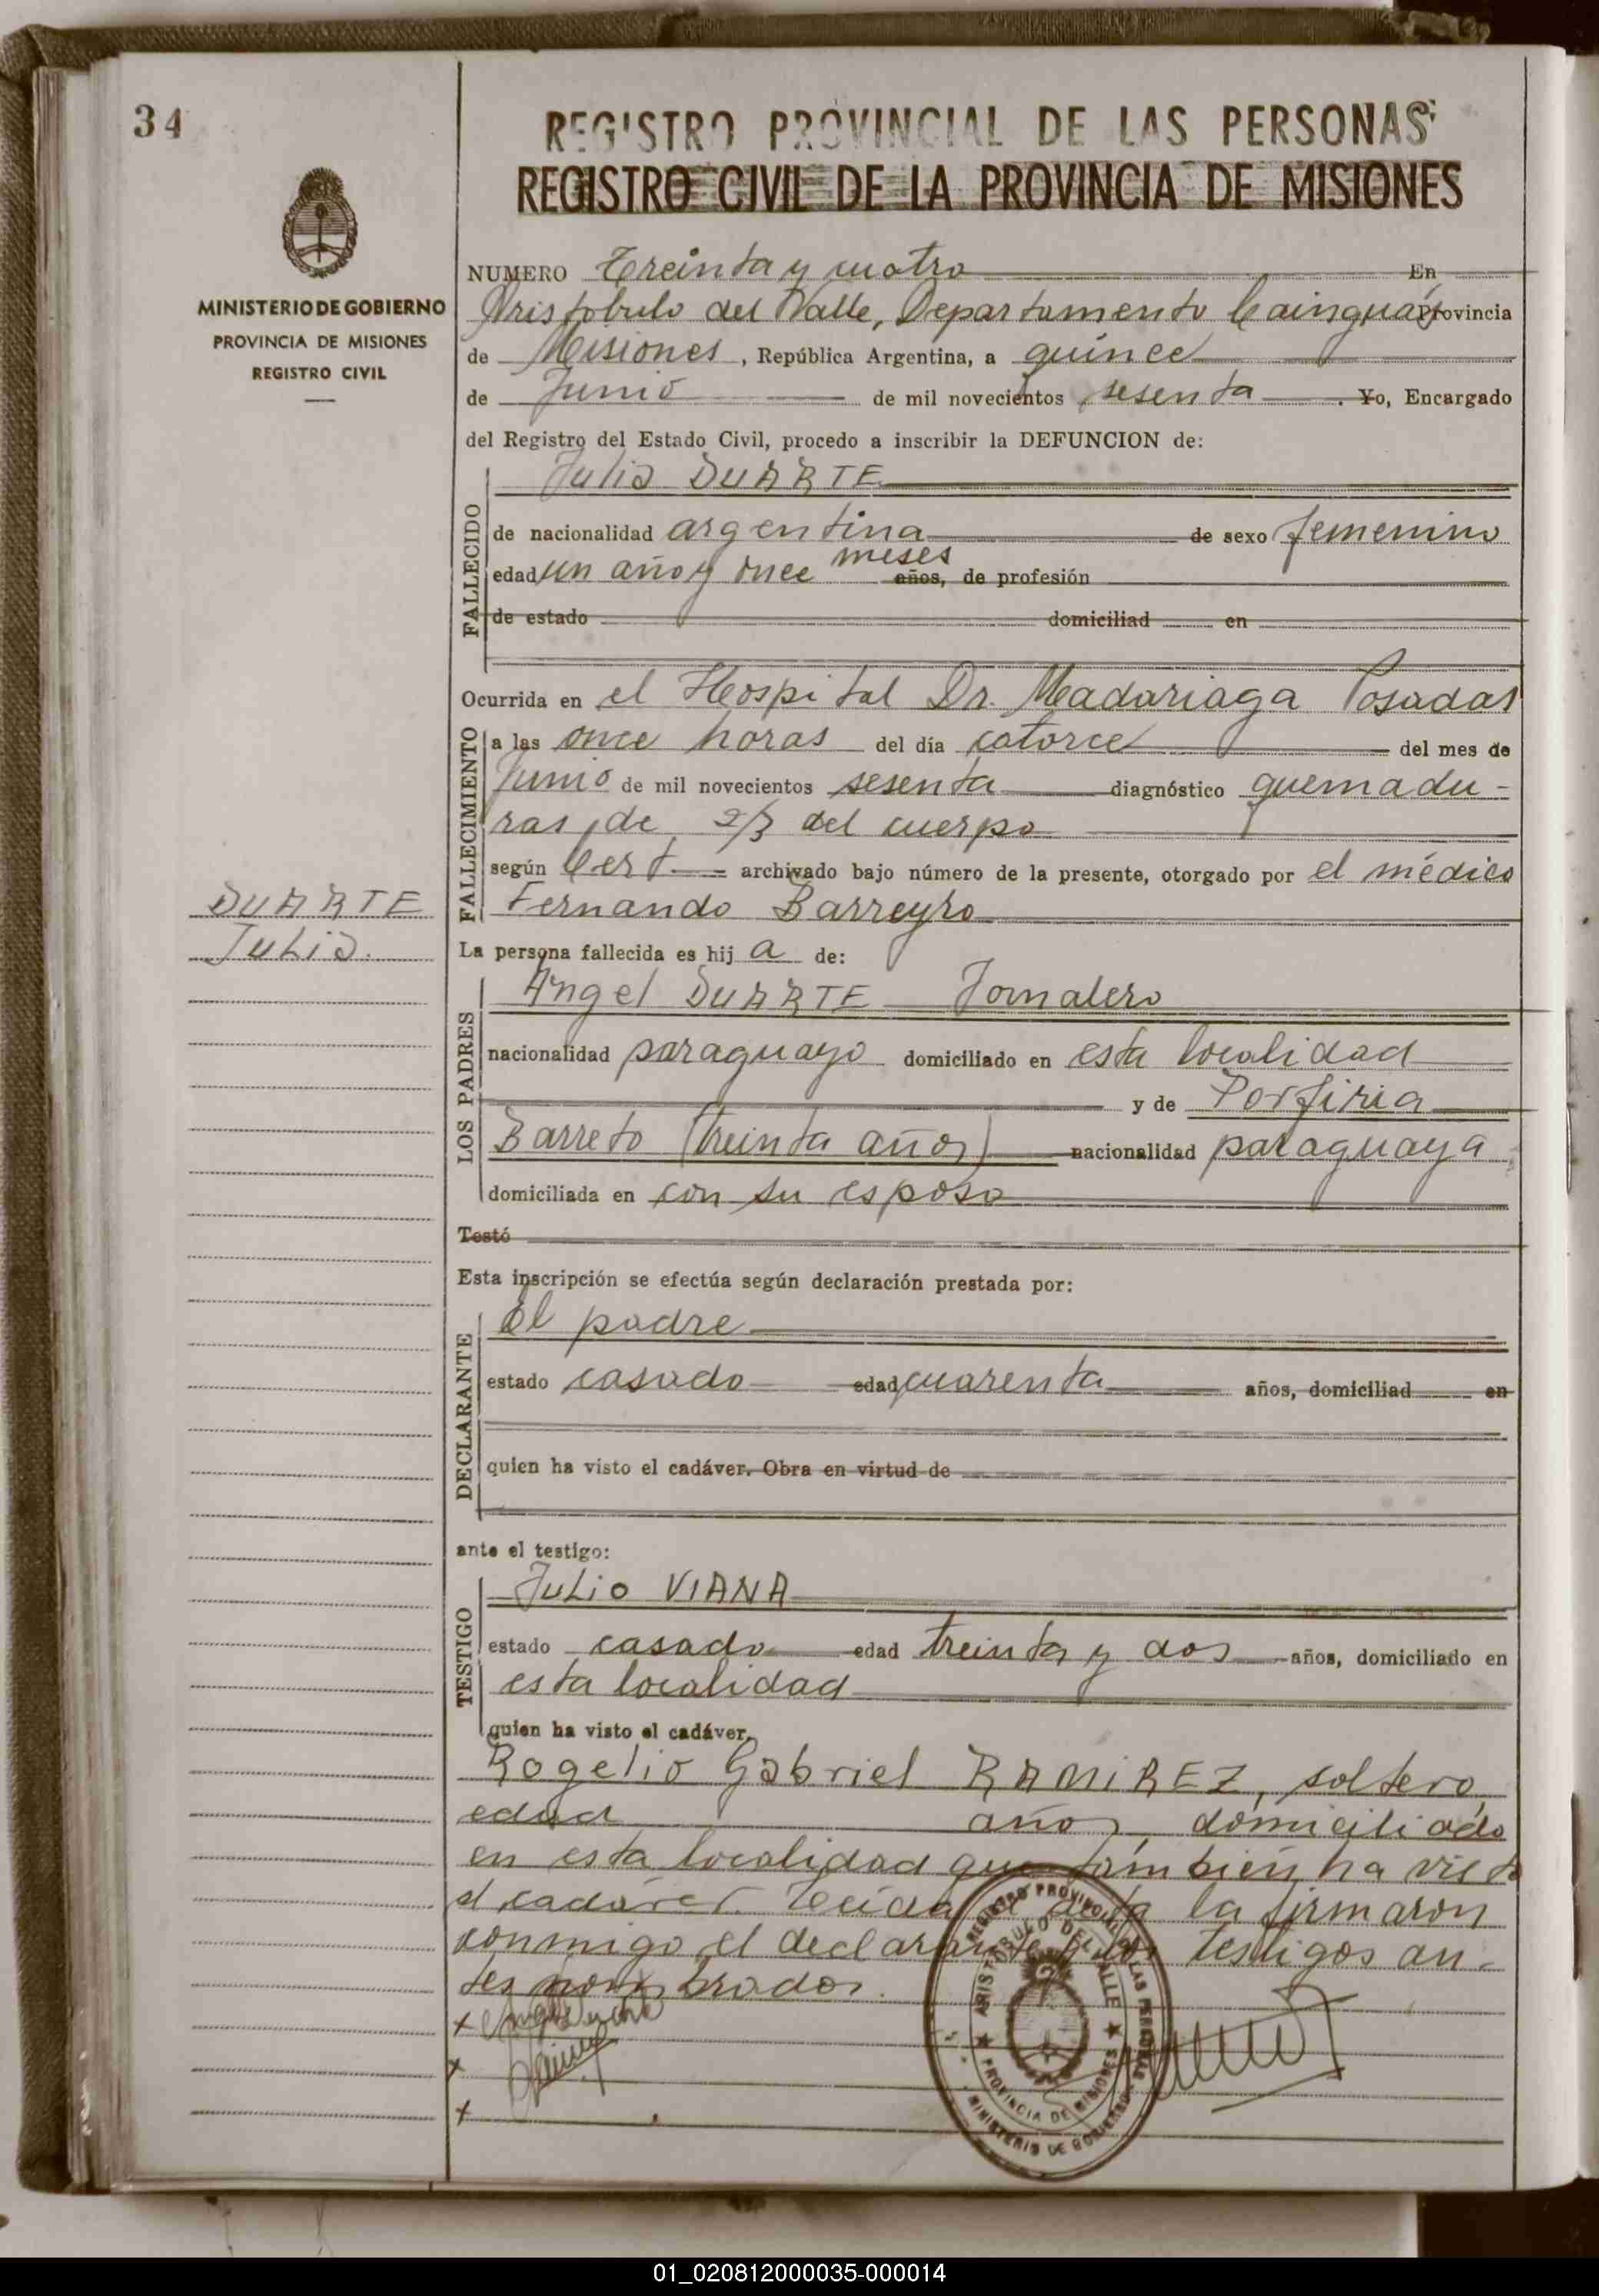 34
REGISTRO PROVINCIAL DE LAS PERSONAS
REGISTRO CIVIL DE LA PROVINCIA DE MISIONES
MINISTERIO DE GOBIERNO
PROVINCIA DE MISIONES
REGISTRO CIVIL
NUMERO Treinta y cuatro En
Aristóbulo del Valle, Departamento Cainguás Provincia
de Misiones, República Argentina, a quince
de Junio de mil novecientos sesenta. Yo, Encargado
del Registro del Estado Civil, procedo a inscribir la DEFUNCION de:
FALLECIDO
Julia DUARTE
de nacionalidad argentina de sexo femenino
meses
edad un año y once años, de profesión
de estado domiciliad en
Ocurrida en el Hospital Dr. Madariaga Posadas
FALLECIMIENTO
a las once horas del día catorce del mes de
Junio de mil novecientos sesenta diagnóstico quemadu-
ras de 2/3 del cuerpo
según Cert. archivado bajo número de la presente, otorgado por el médico
Fernando Barreyro
DUARTE
Julia.
La persona fallecida es hij a de:
LOS PADRES
Angel DUARTE Jornalero
nacionalidad paraguayo domiciliado en esta localidad
y de Porfiria
Barreto (treinta años) nacionalidad paraguaya
domiciliada en con su esposo
Testó
Esta inscripción se efectúa según declaración prestada por:
DECLARANTE
El padre
estado casado edad cuarenta años, domiciliad en
quien ha visto el cadáver. Obra en virtud de
ante el testigo:
TESTIGO
Julio VIANA
estado casado edad treinta y dos años, domiciliado en
esta localidad
quien ha visto el cadáver.
Rogelio Gabriel RAMIREZ, soltero,
edad años, domiciliado
en esta localidad que también ha visto
el cadáver. Leída el acta la firmaron
conmigo el declarante y los testigos an-
tes nombrados.
REGISTRO PROVINCIAL DE LAS PERSONAS
ARISTOBULO DEL VALLE
PROVINCIA DE MISIONES
MINISTERIO DE GOBIERNO
01_020812000035-000014